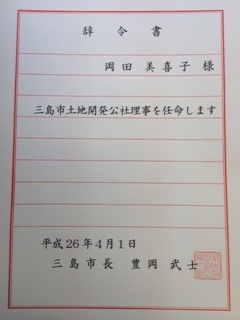 辞令書
岡田 美喜子 様
三島市土地開発公社理事を任命します
平成26年4月1日
三島市長 豊岡 武士